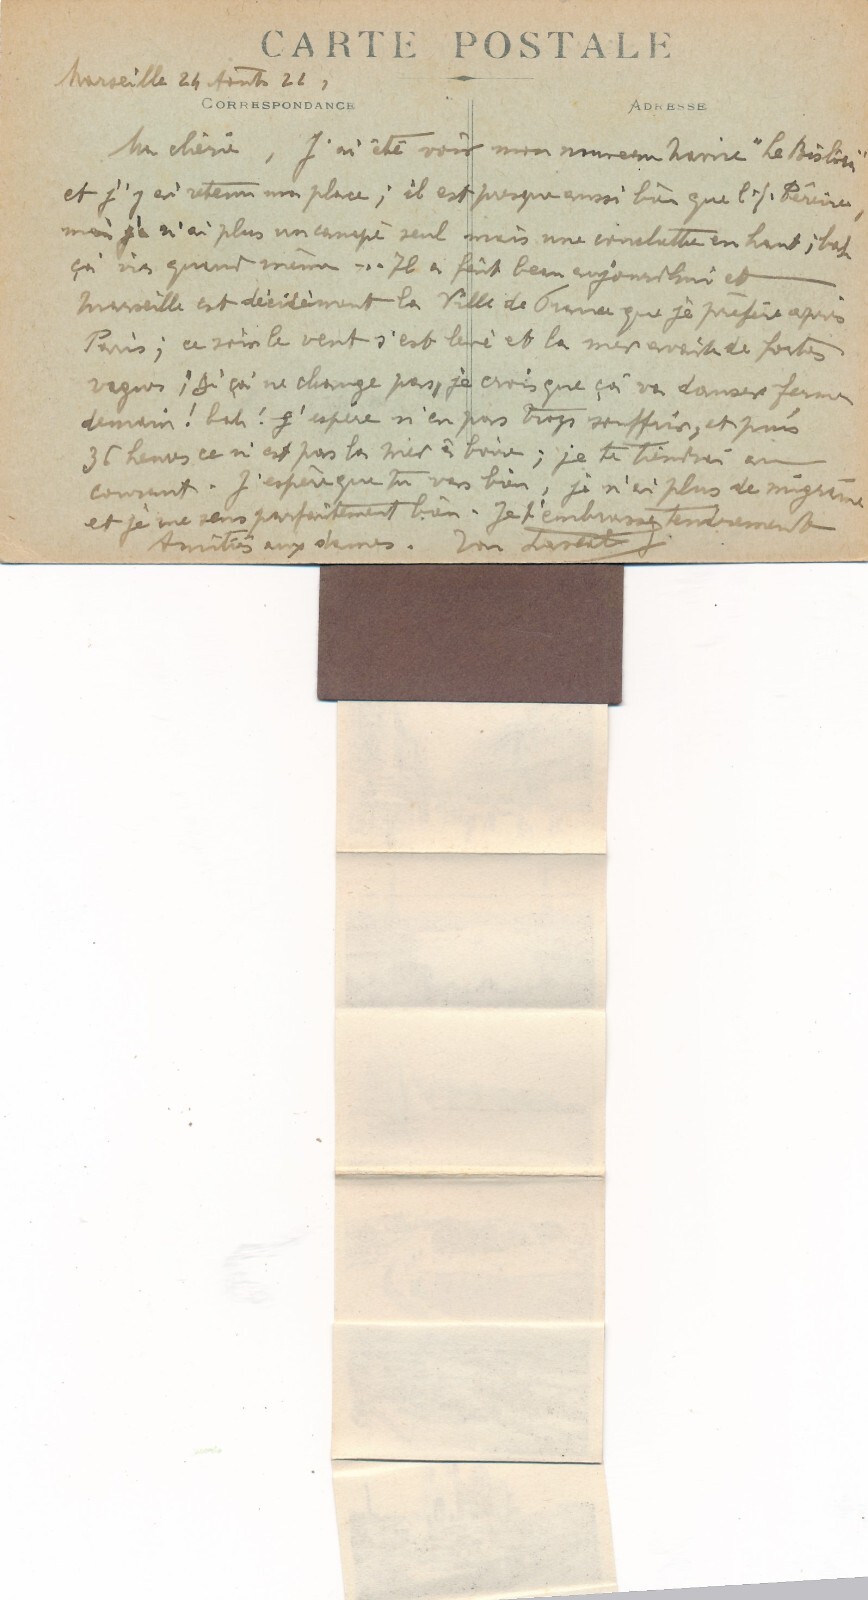 CARTE POSTALE
Marseille 24 Août 21,
CORRESPONDANCE
ADRESSE
Ma chérie, J'ai été voir mon nouveau navire "Le Biskra"
et j'y ai retenu ma place ; il est presque aussi bien que l'I. Péreire,
mais je n'ai plus un canapé seul mais une couchette en haut ; bah
ça ira quand même ... Il a fait beau aujourd'hui et
Marseille est décidément la Ville de France que je préfère après
Paris ; ce soir le vent s'est levé et la mer avait de fortes
vagues ; si ça ne change pas, je crois que ça va danser ferme
demain ! bah ! j'espère n'en pas trop souffrir, et puis
36 heures ce n'est pas la mer à boire ; je te tiendrai au
courant. J'espère que tu vas bien, je n'ai plus de migraine
et je me sens parfaitement bien. Je t'embrasse tendrement
Amitiés aux dames. Ton